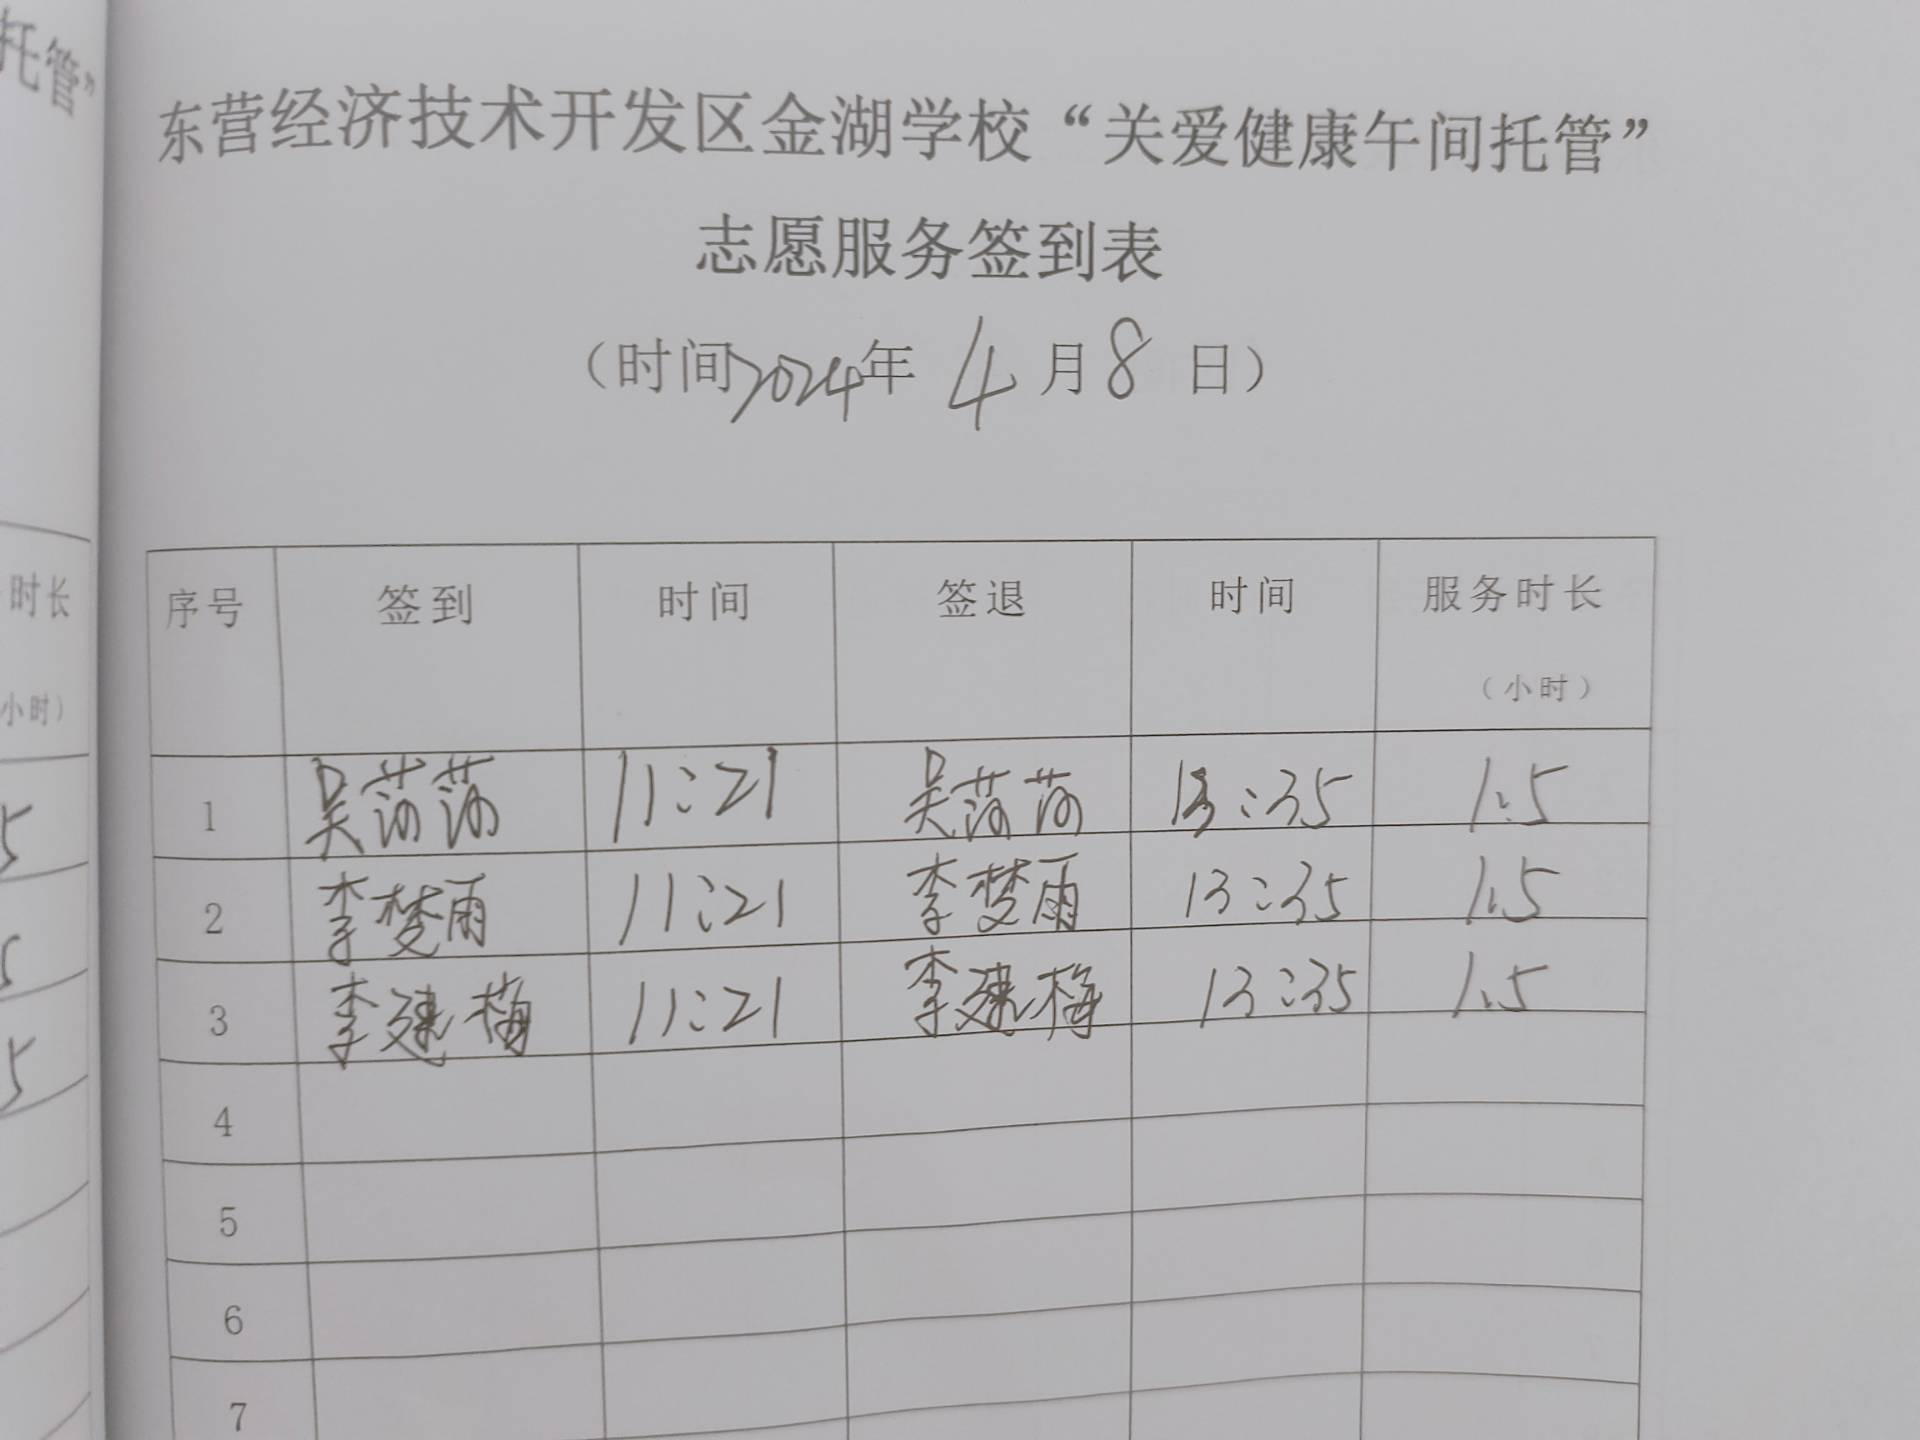 托管”
时长
小时）
5
5
5
东营经济技术开发区金湖学校“关爱健康午间托管”
志愿服务签到表
（时间2024年 4 月 8 日）
序号 签到 时间 签退 时间 服务时长
（小时）
1 吴莎莎 11:21 吴莎莎 13:35 1.5
2 李梦雨 11:21 李梦雨 13:35 1.5
3 李建梅 11:21 李建梅 13:35 1.5
4
5
6
7